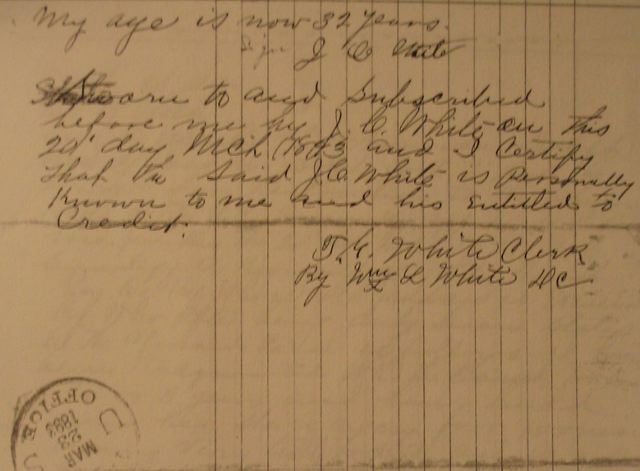 My age is now 32 years.
J C White
Sworn to and Subscribed
before me by J. C. White on this
20" day Mch 1883 and I Certify
that the said J. C. White is Personally
Known to me and his entitled to
Credit.
T. G. White Clerk
By Wm L White DC
OFFICE
MAR
23
1883
U